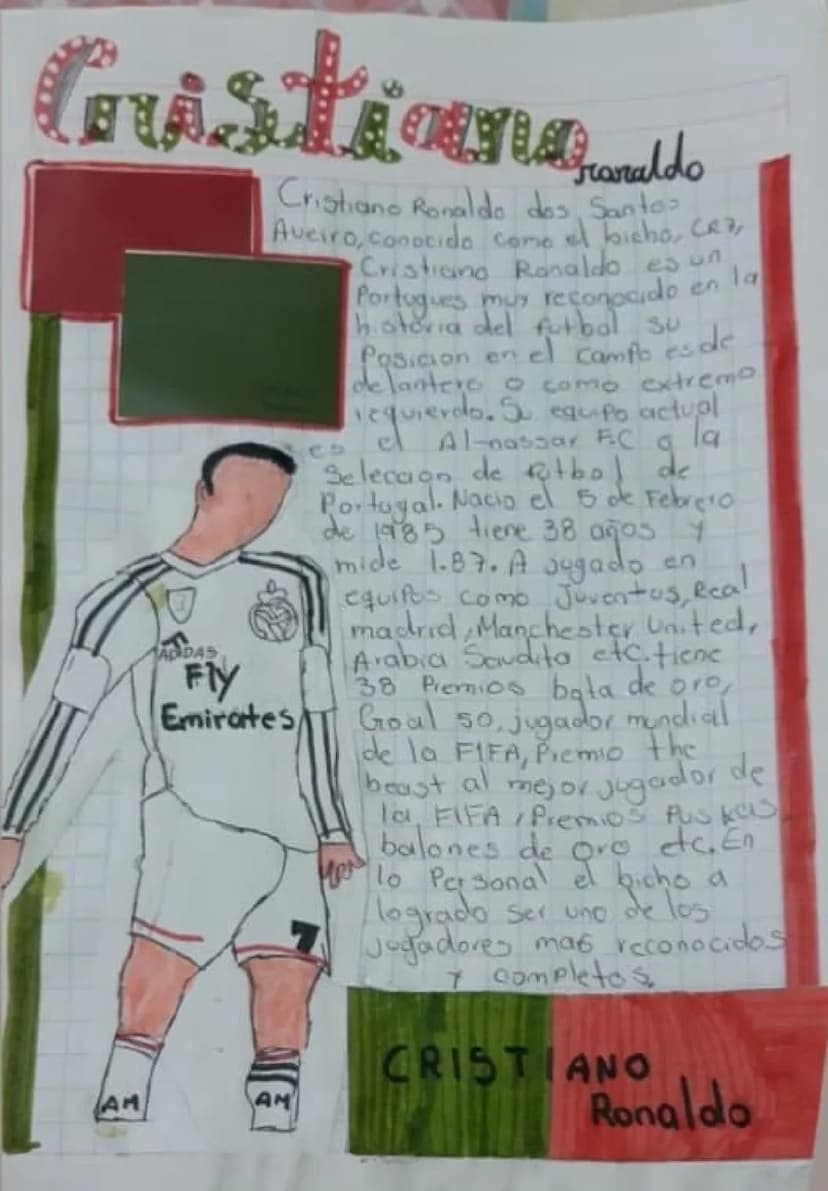 Cristiano
ronaldo
Cristiano Ronaldo dos Santos
Aveiro, conocido como el bicho, CR7,
Cristiano Ronaldo es un
Portugues muy reconocido en la
historia del futbol su
Posicion en el campo es de
delantero o como extremo
izquierdo. Su equipo actual
es el Al-nassar F.C a la
Seleccion de futbol de
Portugal. Nacio el 5 de Febrero
de 1985 tiene 38 años y
mide 1.87. A jugado en
equipos como Juventus, Real
madrid, Manchester United,
Arabia Saudita etc. tiene
38 Premios bota de oro,
Goal 50, jugador mundial
de la FIFA, Premio the
beast al mejor jugador de
la FIFA, Premios Puskas,
balones de oro etc. En
lo Personal el bicho a
logrado ser uno de los
jugadores mas reconocidos
y completos.
ADIDAS
Fly
Emirates
7
AM
AM
CRISTIANO
Ronaldo